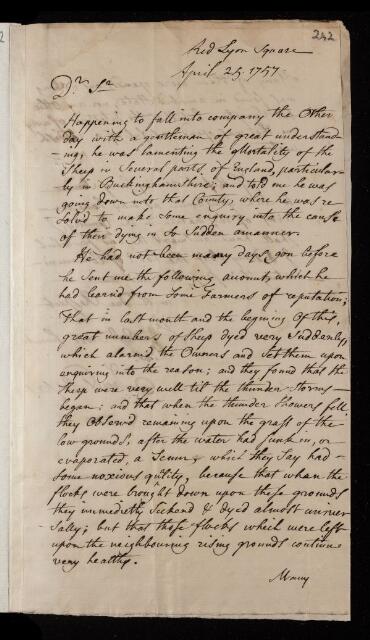 242
Red Lyon Square
April 25, 1757
Dr. Sr.
Happening to fall into company the Other
day with a gentleman of great understand-
-ing; he was lamenting the Mortality of the
Sheep in Several parts of England, particular-
ly in Buckinghamshire; and told me he was
going down into that County, where he was re-
solv'd to make Some enquiry into the cause
of their dying in So Sudden amanner.
He had not been many days gon before
he Sent me the following acount, which he
had learnd from Some Farmers of reputation;
That in last month and the begining Of this,
great numbers of Sheep dyed very Suddenly,
which alarmd the Owners and Set them upon
enquiring into the reason; and they found that the
Sheep were very well til the thunder Storms
began; and that when the thunder Showers fell,
they Observd remaining upon the grass of the
low grounds, after the water had Sunk in, or
evaporated, a Scum, which they Say had
Some noxious qulity, because that whan the
flocks were brought down upon these grounds
they immedietly Sickend & dyed almost univer
Sally; but that those flocks which were left
upon the neighbouring rising grounds continue
very healthy.
Many